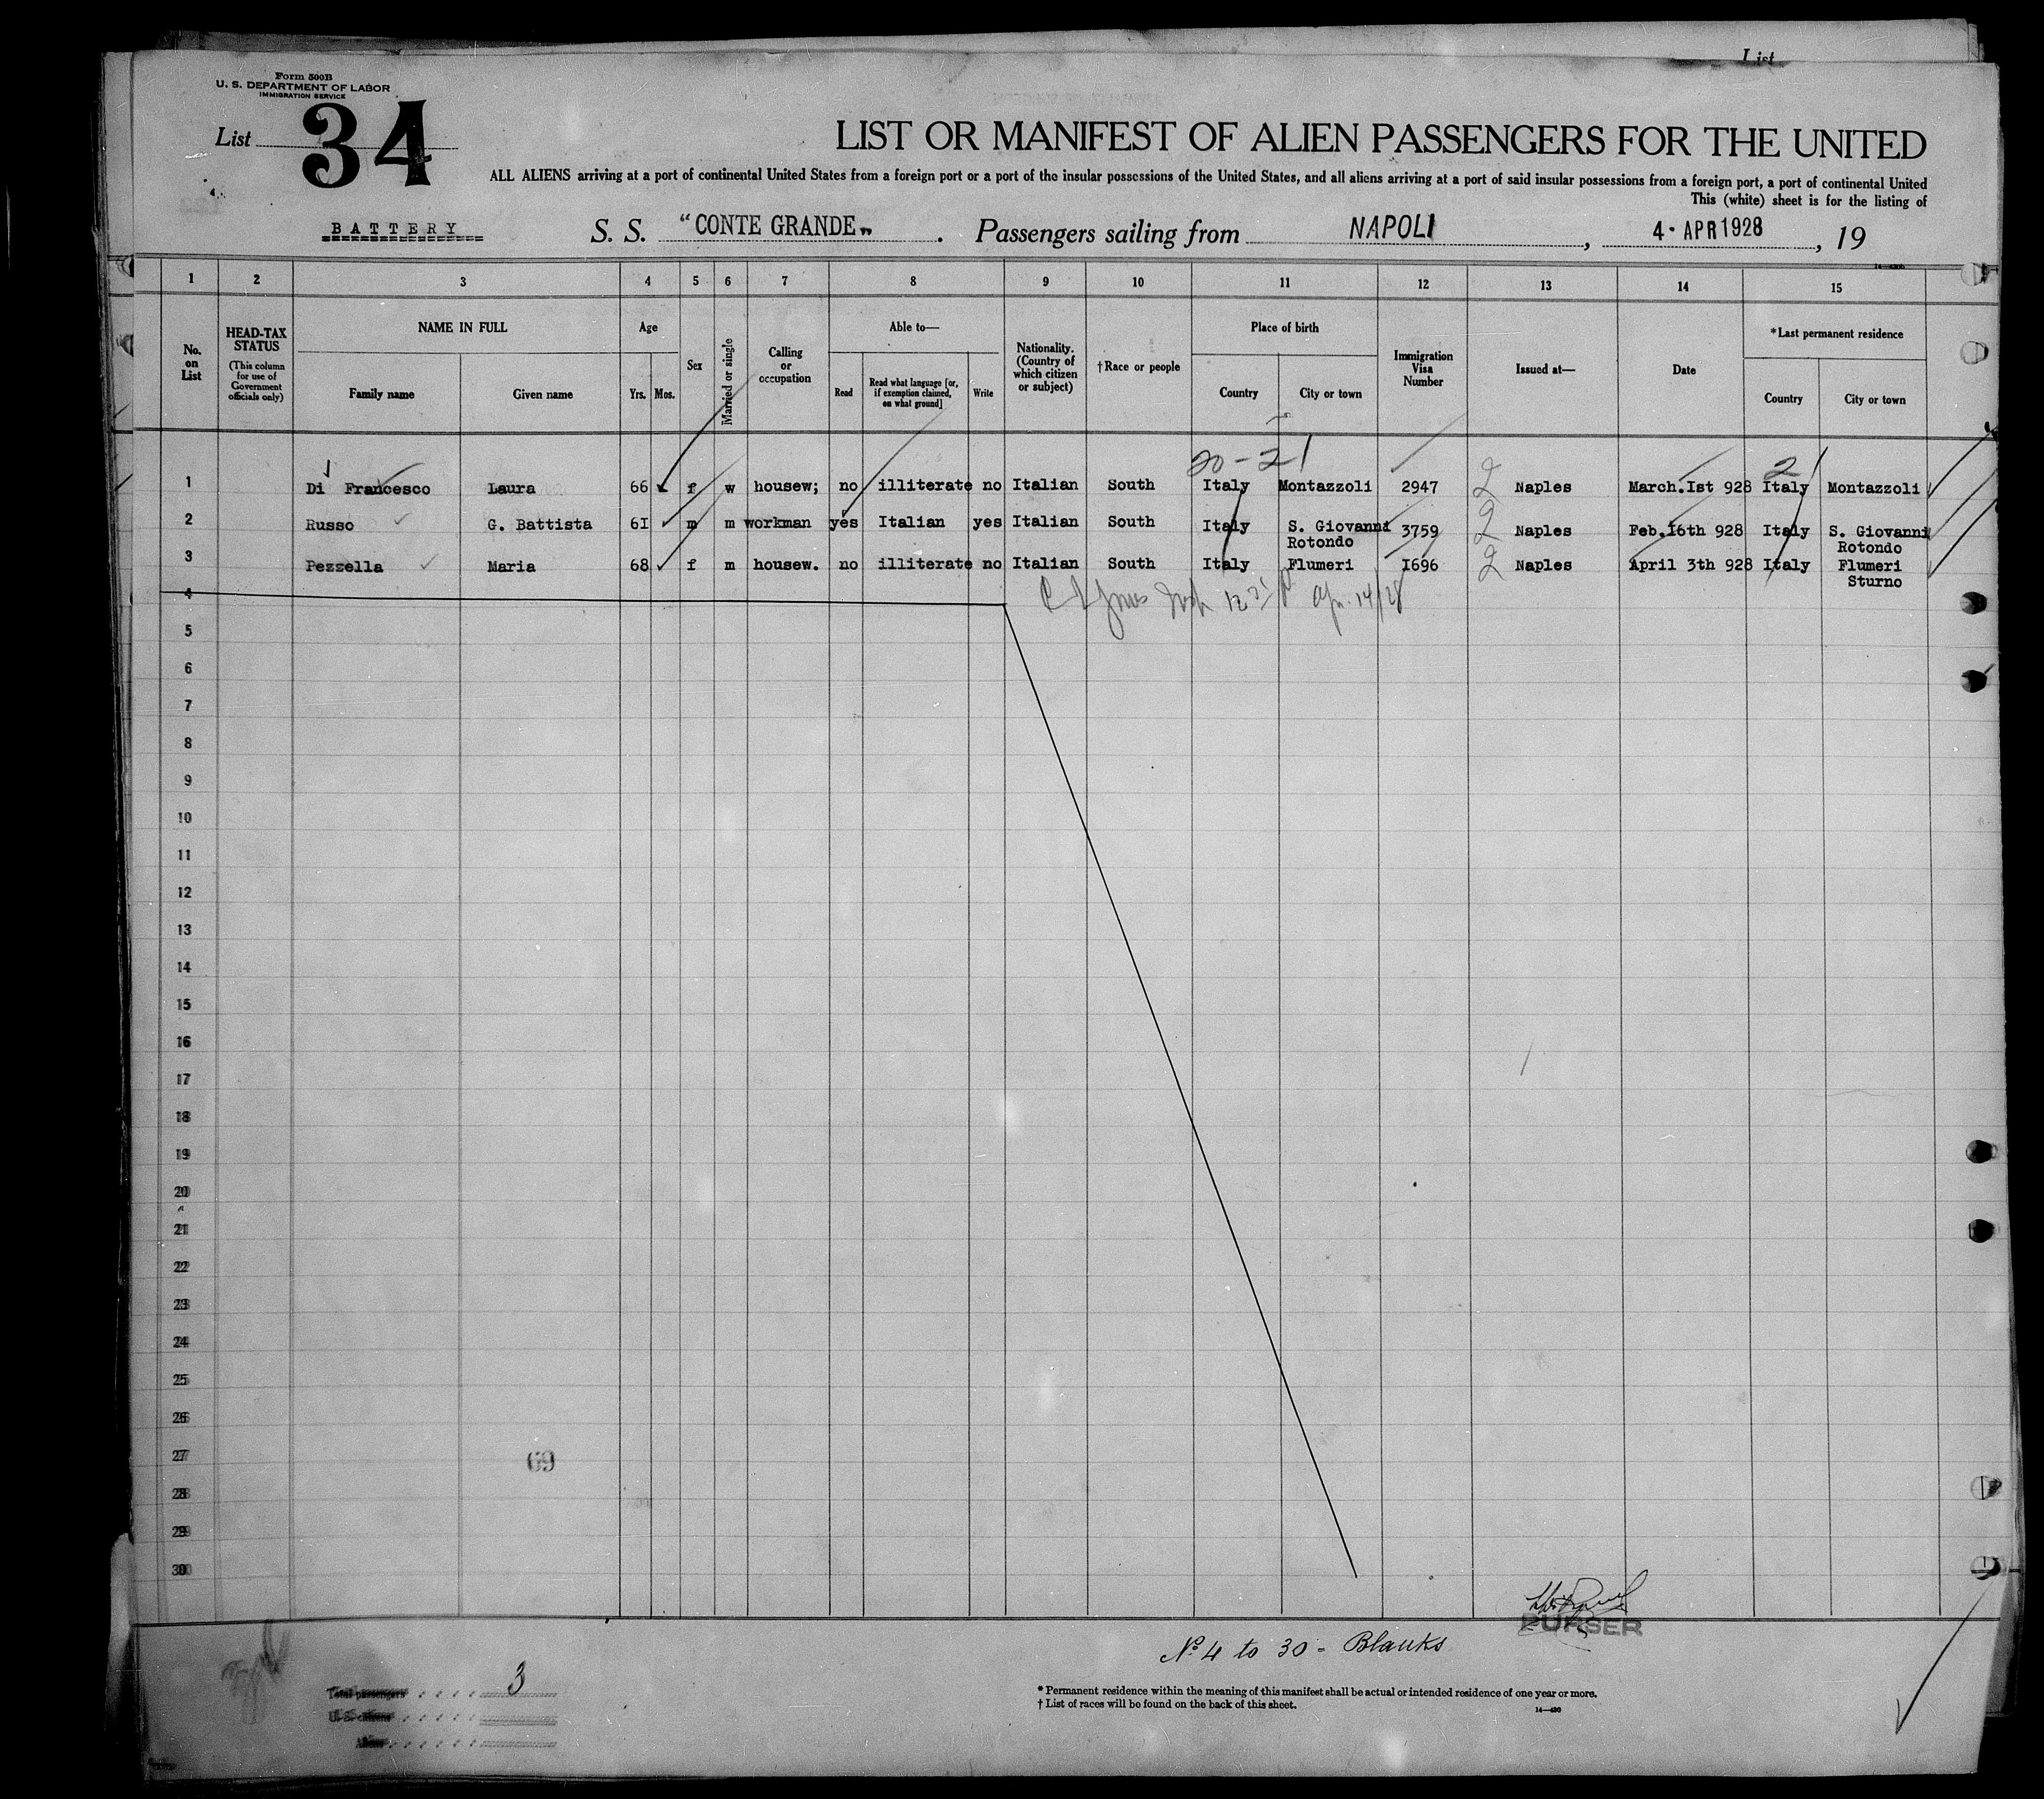 List
Form 500B
U. S. DEPARTMENT OF LABOR
IMMIGRATION SERVICE
List 34
LIST OR MANIFEST OF ALIEN PASSENGERS FOR THE UNITED
ALL ALIENS arriving at a port of continental United States from a foreign port or a port of the insular possessions of the United States, and all aliens arriving at a port of said insular possessions from a foreign port, a port of continental United
This (white) sheet is for the listing of
BATTERY S. S. "CONTE GRANDE". Passengers sailing from NAPOLI, 4 - APR 1928, 19
1 2 3 4 5 6 7 8 9 10 11 12 13 14 15
No. on List
HEAD-TAX STATUS (This column for use of Government officials only)
NAME IN FULL
Family name Given name
Age
Yrs. Mos.
Sex
Married or single
Calling or occupation
Able to—
Read Read what language [or, if exemption claimed, on what ground] Write
Nationality. (Country of which citizen or subject)
†Race or people
Place of birth
Country City or town
Immigration Visa Number
Issued at—
Date
*Last permanent residence
Country City or town
20-21 21
1 Di Francesco Laura 66 f w housew; no illiterate no Italian South Italy Montazzoli 2947 2 Naples March.Ist 928 Italy Montazzoli
2 Russo G. Battista 6I m m workman yes Italian yes Italian South Italy S. Giovanni Rotondo 3759 2 Naples Feb.I6th 928 Italy S. Giovanni Rotondo
3 Pezzella Maria 68 f m housew. no illiterate no Italian South Italy Flumeri I696 2 Naples April 3th 928 Italy Flumeri Sturno
4
5
6
7
8
9
10
11
12
13
14
15
16
17
18
19
20
21
22
23
24
25
26
27
28
29
30
69
PURSER
No 4 to 30 - Blanks
Total passengers 3
U. S. citizens
Aliens
* Permanent residence within the meaning of this manifest shall be actual or intended residence of one year or more.
† List of races will be found on the back of this sheet.
14—430